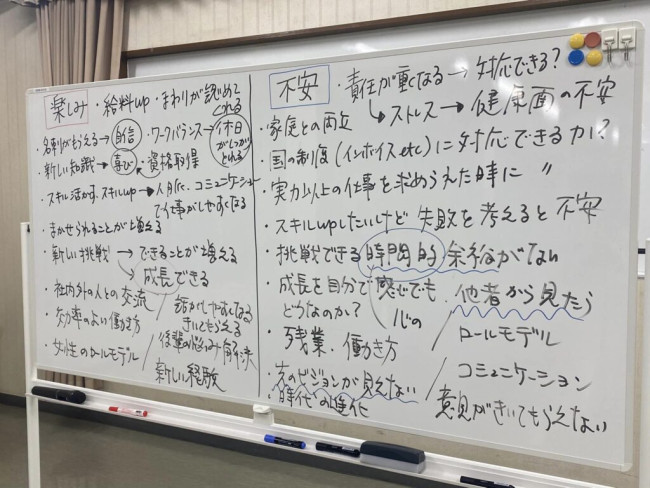 楽しみ
・給料up ・まわりが認めて
くれる
・名刺がもらえる→自信 ・ワークバランス→休日
がしっかり
とれる
・新しい知識→喜び 資格取得
・スキル活かす、スキルup→人月に、コミュニケーション
で仕事がしやすくなる
・まかせられることが増える
・新しい挑戦→できることが増える
成長できる
・社内外の人との交流
話がしやすくなる
きいてもらえる
・効率のよい働き方
後輩の悩み解決
・女性のロールモデル
新しい経験
不安
・責任が重くなる→対応できる?
↳ストレス→健康面の不安
・家庭との両立
・国の制度(インボイスetc)に対応できるか?
・実力以上の仕事を求めらえた時に 〃
・スキルupしたいけど失敗を考えると不安
・挑戦できる時間的余裕がない
・成長を自分で感じでも 他者から見たら
どうなのか?
心の
ロールモデル
・残業、働き方
コミュニケーション
・のビジョンが見えない
意見がきいてもらえない
・時代の進化